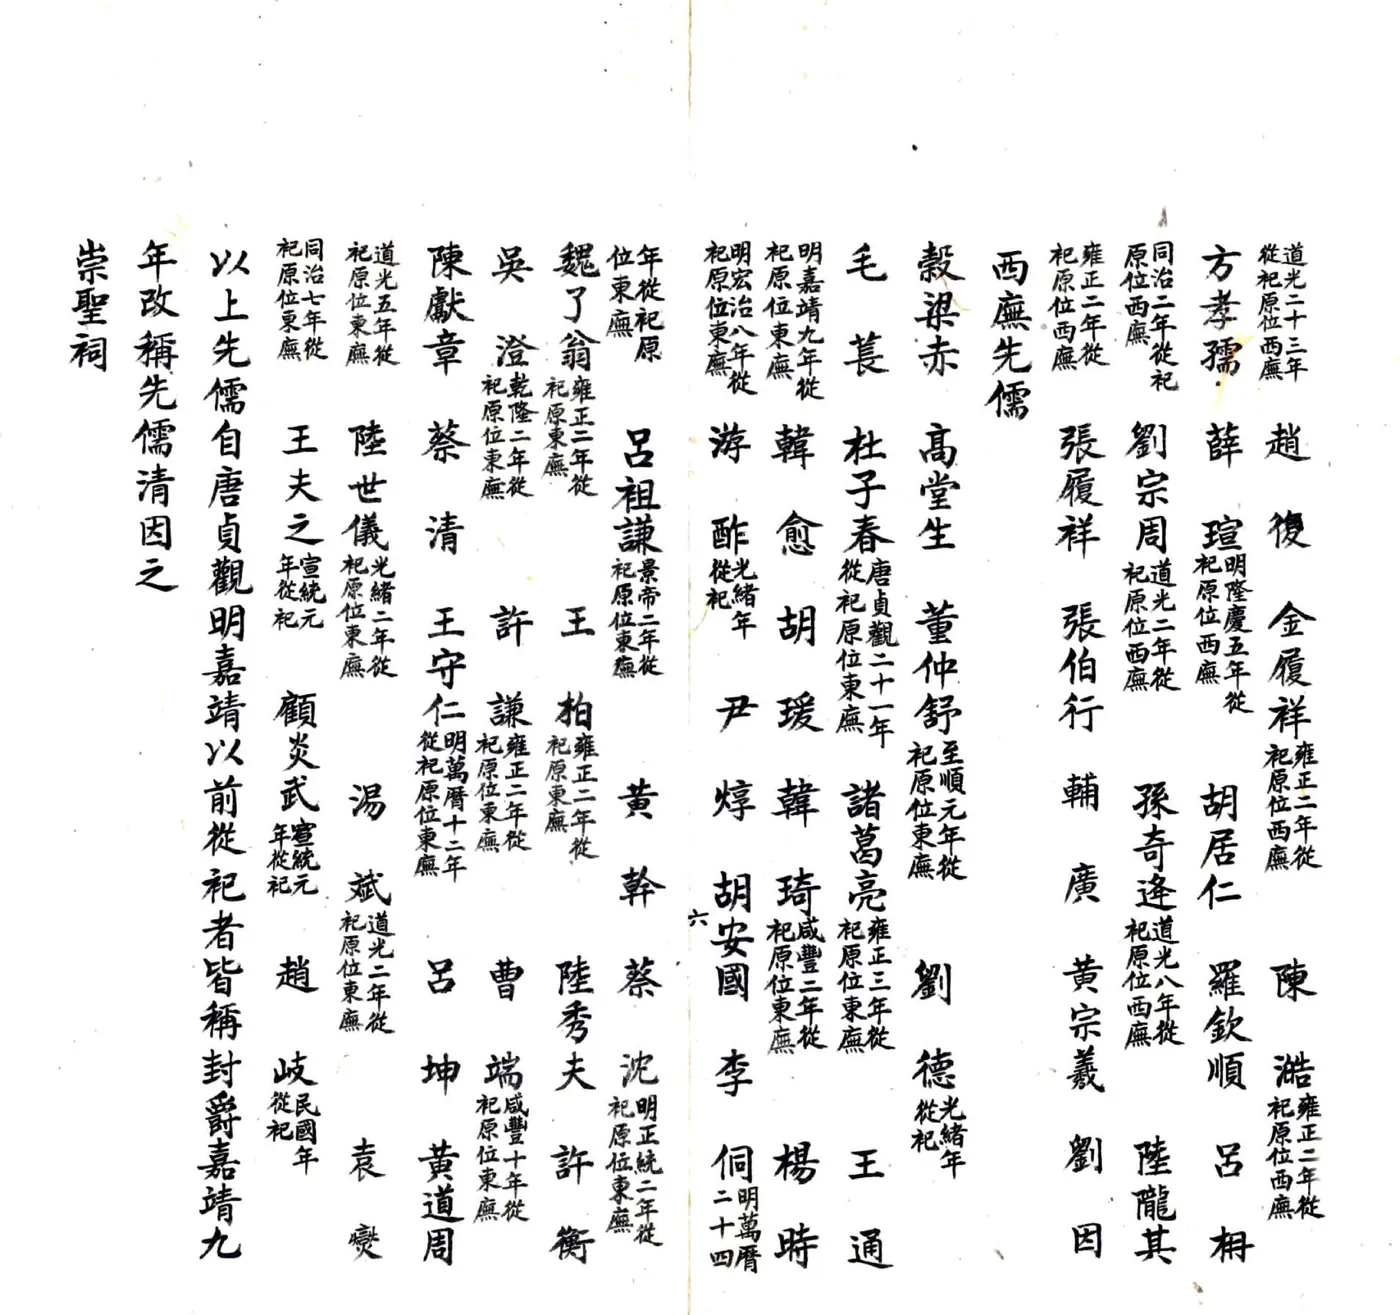 道光二十三年從祀原位西廡 趙復 金履祥 雍正二年從祀原位西廡 陳澔 雍正二年從祀原位西廡
方孝孺 薛瑄 明隆慶五年從祀原位西廡 胡居仁 羅欽順 呂柟
同治二年從祀原位西廡 劉宗周 道光二年從祀原位西廡 孫奇逢 道光八年從祀原位西廡 陸隴其
雍正二年從祀原位西廡 張履祥 張伯行 輔廣 黃宗羲 劉因
西廡先儒
穀梁赤 高堂生 董仲舒 至順元年從祀原位東廡 劉德 光緒年從祀
毛萇 杜子春 唐貞觀二十一年從祀原位東廡 諸葛亮 雍正三年從祀原位東廡 王通
明嘉靖九年從祀原位東廡 韓愈 胡瑗 韓琦 咸豐二年從祀原位東廡 楊時
明宏治八年從祀原位東廡 游酢 光緒年從祀 尹焞 胡安國 李侗 明萬曆二十四
六
年從祀原位東廡 呂祖謙 景帝二年從祀原位東廡 黃幹 蔡沈 明正統二年從祀原位東廡
魏了翁 雍正二年從祀原東廡 王柏 雍正二年從祀原東廡 陸秀夫 許衡
吳澄 乾隆二年從祀原位東廡 許謙 雍正二年從祀原位東廡 曹端 咸豐十年從祀原位東廡
陳獻章 蔡清 王守仁 明萬曆十二年從祀原位東廡 呂坤 黃道周
道光五年從祀原位東廡 陸世儀 光緒二年從祀原位東廡 湯斌 道光二年從祀原位東廡 袁燮
同治七年從祀原位東廡 王夫之 宣統元年從祀 顧炎武 宣統元年從祀 趙岐 民國年從祀
以上先儒自唐貞觀明嘉靖以前從祀者皆稱封爵嘉靖九
年改稱先儒清因之
崇聖祠